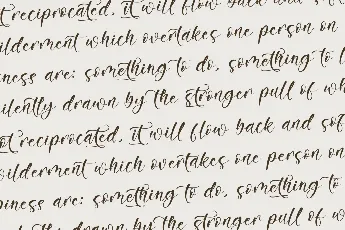 t reciprocated, it will flow back and sof
ilderment which overtakes one person on
iness are: something to do, something to l
silently drawn by the stronger pull of wh
ot reciprocated, it will flow back and sof
wilderment which overtakes one person on
piness are: something to do, something to
silently drawn by the stronger pull of w